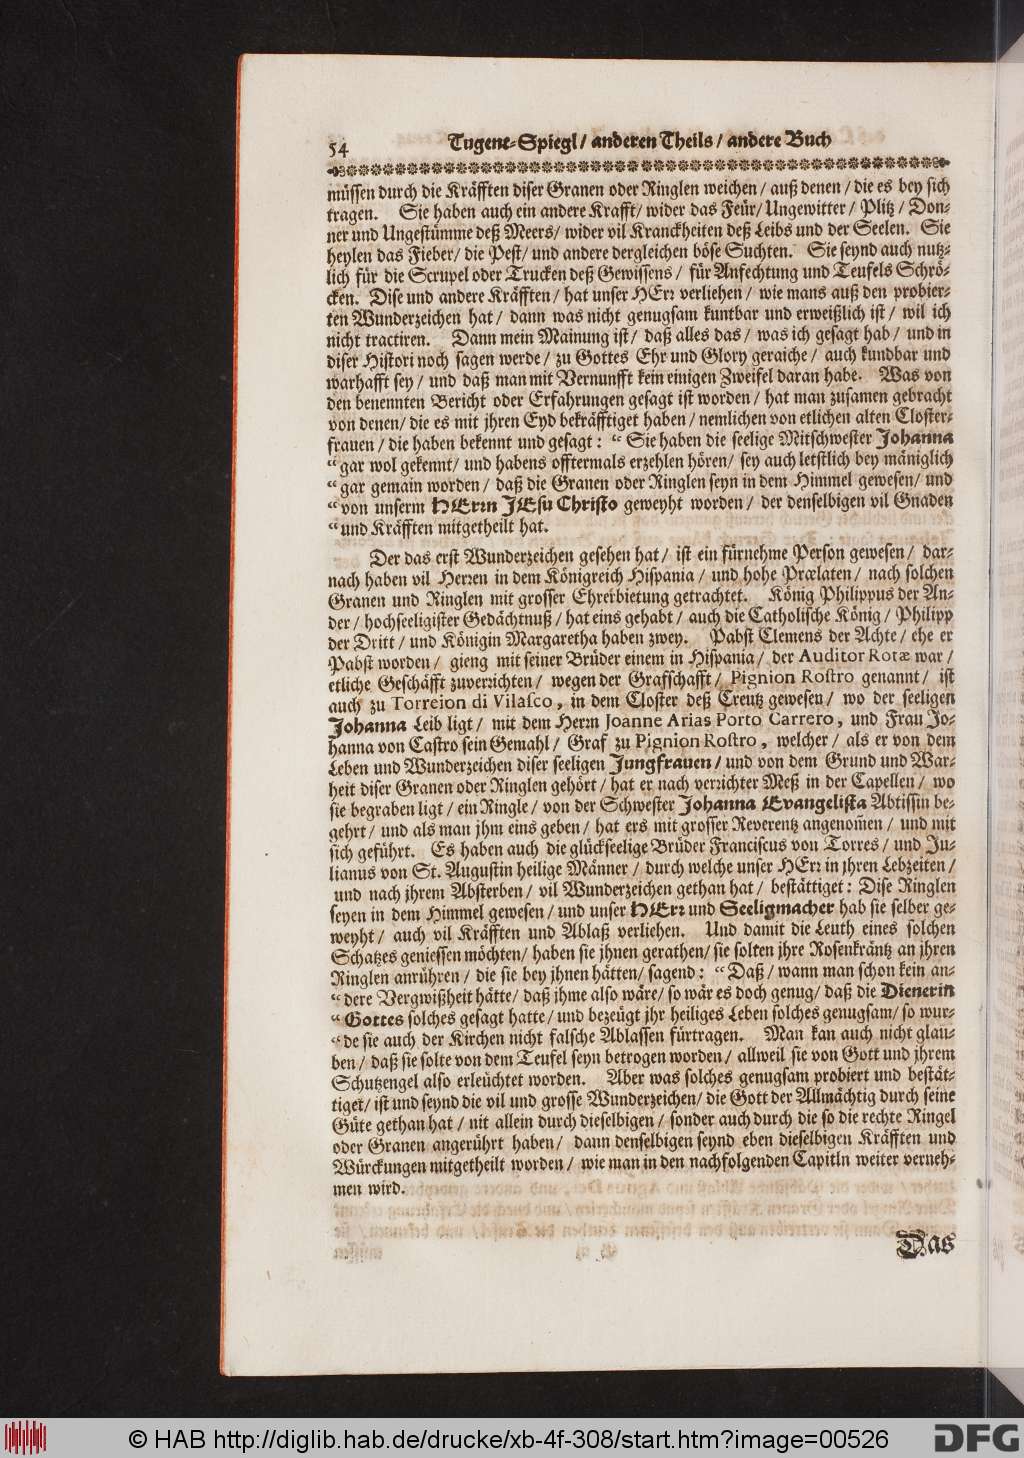 54
Tugent-Spiegl / anderen Theils / andere Buch
müssen durch die Kräfften diser Granen oder Ringlen weichen / auß denen / die es bey sich
tragen. Sie haben auch ein andere Krafft / wider das Feür / Ungewitter / Plitz / Don-
ner und Ungestümme deß Meers / wider vil Kranckheiten deß Leibs und der Seelen. Sie
heylen das Fieber / die Pest / und andere dergleichen böse Suchten. Sie seynd auch nutz-
lich für die Scrupel oder Trucken deß Gewissens / für Anfechtung und Teufels Schrö-
cken. Dise und andere Kräfften / hat unser HErr verliehen / wie mans auß den probier-
ten Wunderzeichen hat / dann was nicht genugsam kuntbar und erweißlich ist / wil ich
nicht tractiren. Dann mein Mainung ist / daß alles das / was ich gesagt hab / und in
diser Histori noch sagen werde / zu Gottes Ehr und Glory geraiche / auch kundbar und
warhafft sey / und daß man mit Vernunfft kein einigen Zweifel daran habe. Was von
den benennten Bericht oder Erfahrungen gesagt ist worden / hat man zusamen gebracht
von denen / die es mit jhren Eyd bekräfftiget haben / nemlichen von etlichen alten Closter-
frauen / die haben bekennt und gesagt : “ Sie haben die seelige Mitschwester Johanna
“ gar wol gekennt / und habens offtermals erzehlen hören / sey auch letstlich bey mäniglich
“ gar gemain worden / daß die Granen oder Ringlen seyn in dem Himmel gewesen / und
“ von unserm HErrn JEsu Christo geweyht worden / der denselbigen vil Gnaden
“ und Kräfften mitgetheilt hat.
Der das erst Wunderzeichen gesehen hat / ist ein fürnehme Person gewesen / dar-
nach haben vil Herren in dem Königreich Hispania / und hohe Prælaten / nach solchen
Granen und Ringlen mit grosser Ehrerbietung getrachtet. König Philippus der An-
der / hochseeligister Gedächtnuß / hat eins gehabt / auch die Catholische König / Philipp
der Dritt / und Königin Margaretha haben zwey. Pabst Clemens der Achte / ehe er
Pabst worden / gieng mit seiner Brüder einem in Hispania / der Auditor Rotæ war /
etliche Geschäfft zuverrichten / wegen der Grafschafft / Pignion Rostro genannt / ist
auch zu Torreion di Vilasco, in dem Closter deß Creutz gewesen / wo der seeligen
Johanna Leib ligt / mit dem Herrn Joanne Arias Porto Carrero, und Frau Jo-
hanna von Castro sein Gemahl / Graf zu Pignion Rostro, welcher / als er von dem
Leben und Wunderzeichen diser seeligen Jungfrauen / und von dem Grund und War-
heit diser Granen oder Ringlen gehört / hat er nach verrichter Meß in der Capellen / wo
sie begraben ligt / ein Ringle / von der Schwester Johanna Evangelista Abtissin be-
gehrt / und als man jhm eins geben / hat ers mit grosser Reverentz angenom̃en / und mit
sich geführt. Es haben auch die glückseelige Brüder Franciscus von Torres / und Ju-
lianus von St. Augustin heilige Männer / durch welche unser HErr in jhren Lebzeiten /
und nach jhrem Absterben / vil Wunderzeichen gethan hat / bestättiget : Dise Ringlen
seyen in dem Himmel gewesen / und unser HErr und Seeligmacher hab sie selber ge-
weyht / auch vil Kräfften und Ablaß verliehen. Und damit die Leuth eines solchen
Schatzes geniessen möchten / haben sie jhnen gerathen / sie solten jhre Rosenkräntz an jhren
Ringlen anrühren / die sie bey jhnen hätten / sagend : “ Daß / wann man schon kein an-
“ dere Vergwißheit hätte / daß jhme also wäre / so wär es doch genug / daß die Dienerin
“ Gottes solches gesagt hatte / und bezeügt jhr heiliges Leben solches genugsam / so wur-
“ de sie auch der Kirchen nicht falsche Ablassen fürtragen. Man kan auch nicht glau-
ben / daß sie solte von dem Teufel seyn betrogen worden / allweil sie von Gott und jhrem
Schutzengel also erleüchtet worden. Aber was solches genugsam probiert und bestät-
tiget / ist und seynd die vil und grosse Wunderzeichen / die Gott der Allmächtig durch seine
Güte gethan hat / nit allein durch dieselbigen / sonder auch durch die so die rechte Ringel
oder Granen angerührt haben / dann denselbigen seynd eben dieselbigen Kräfften und
Würckungen mitgetheilt worden / wie man in den nachfolgenden Capitln weiter verneh-
men wird.
Das
© HAB http://diglib.hab.de/drucke/xb-4f-308/start.htm?image=00526
DFG